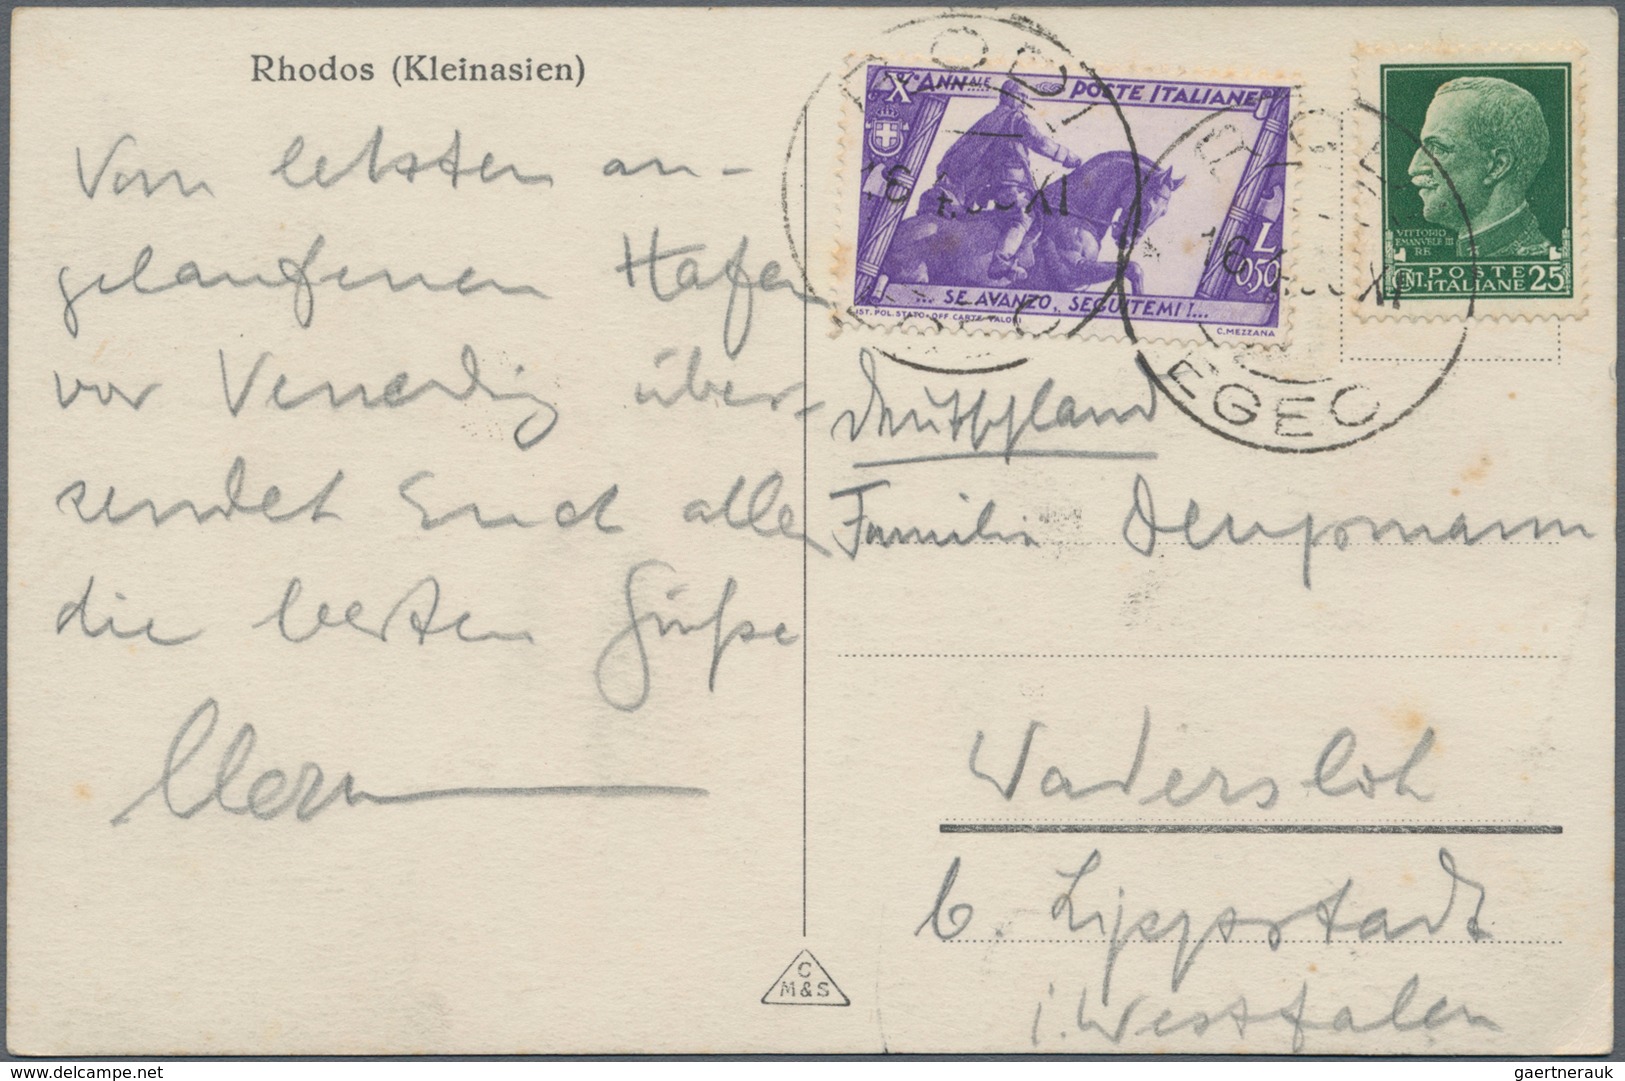 Rhodos (Kleinasien)
Vom letzten an-
gelaufenen Hafen
vor Venedig über-
sendet Euch allen
die besten Grüße
X° ANNALE POSTE ITALIANE
L 0,50
SE AVANZO, SEGUITEMI!...
IST. POL. STATO. OFF. CARTE VALORI
C. MEZZANA
VITTORIO
EMANVELE III
RE
CENT. POSTE ITALIANE 25
RODI
EGEO
16.4.33 XI
16.4.33 XI
EGEO
Deutschland
Familie
Wadersloh
b. Lippstadt
i. Westfalen
C
M & S
delcampe.net
gaertnerauk